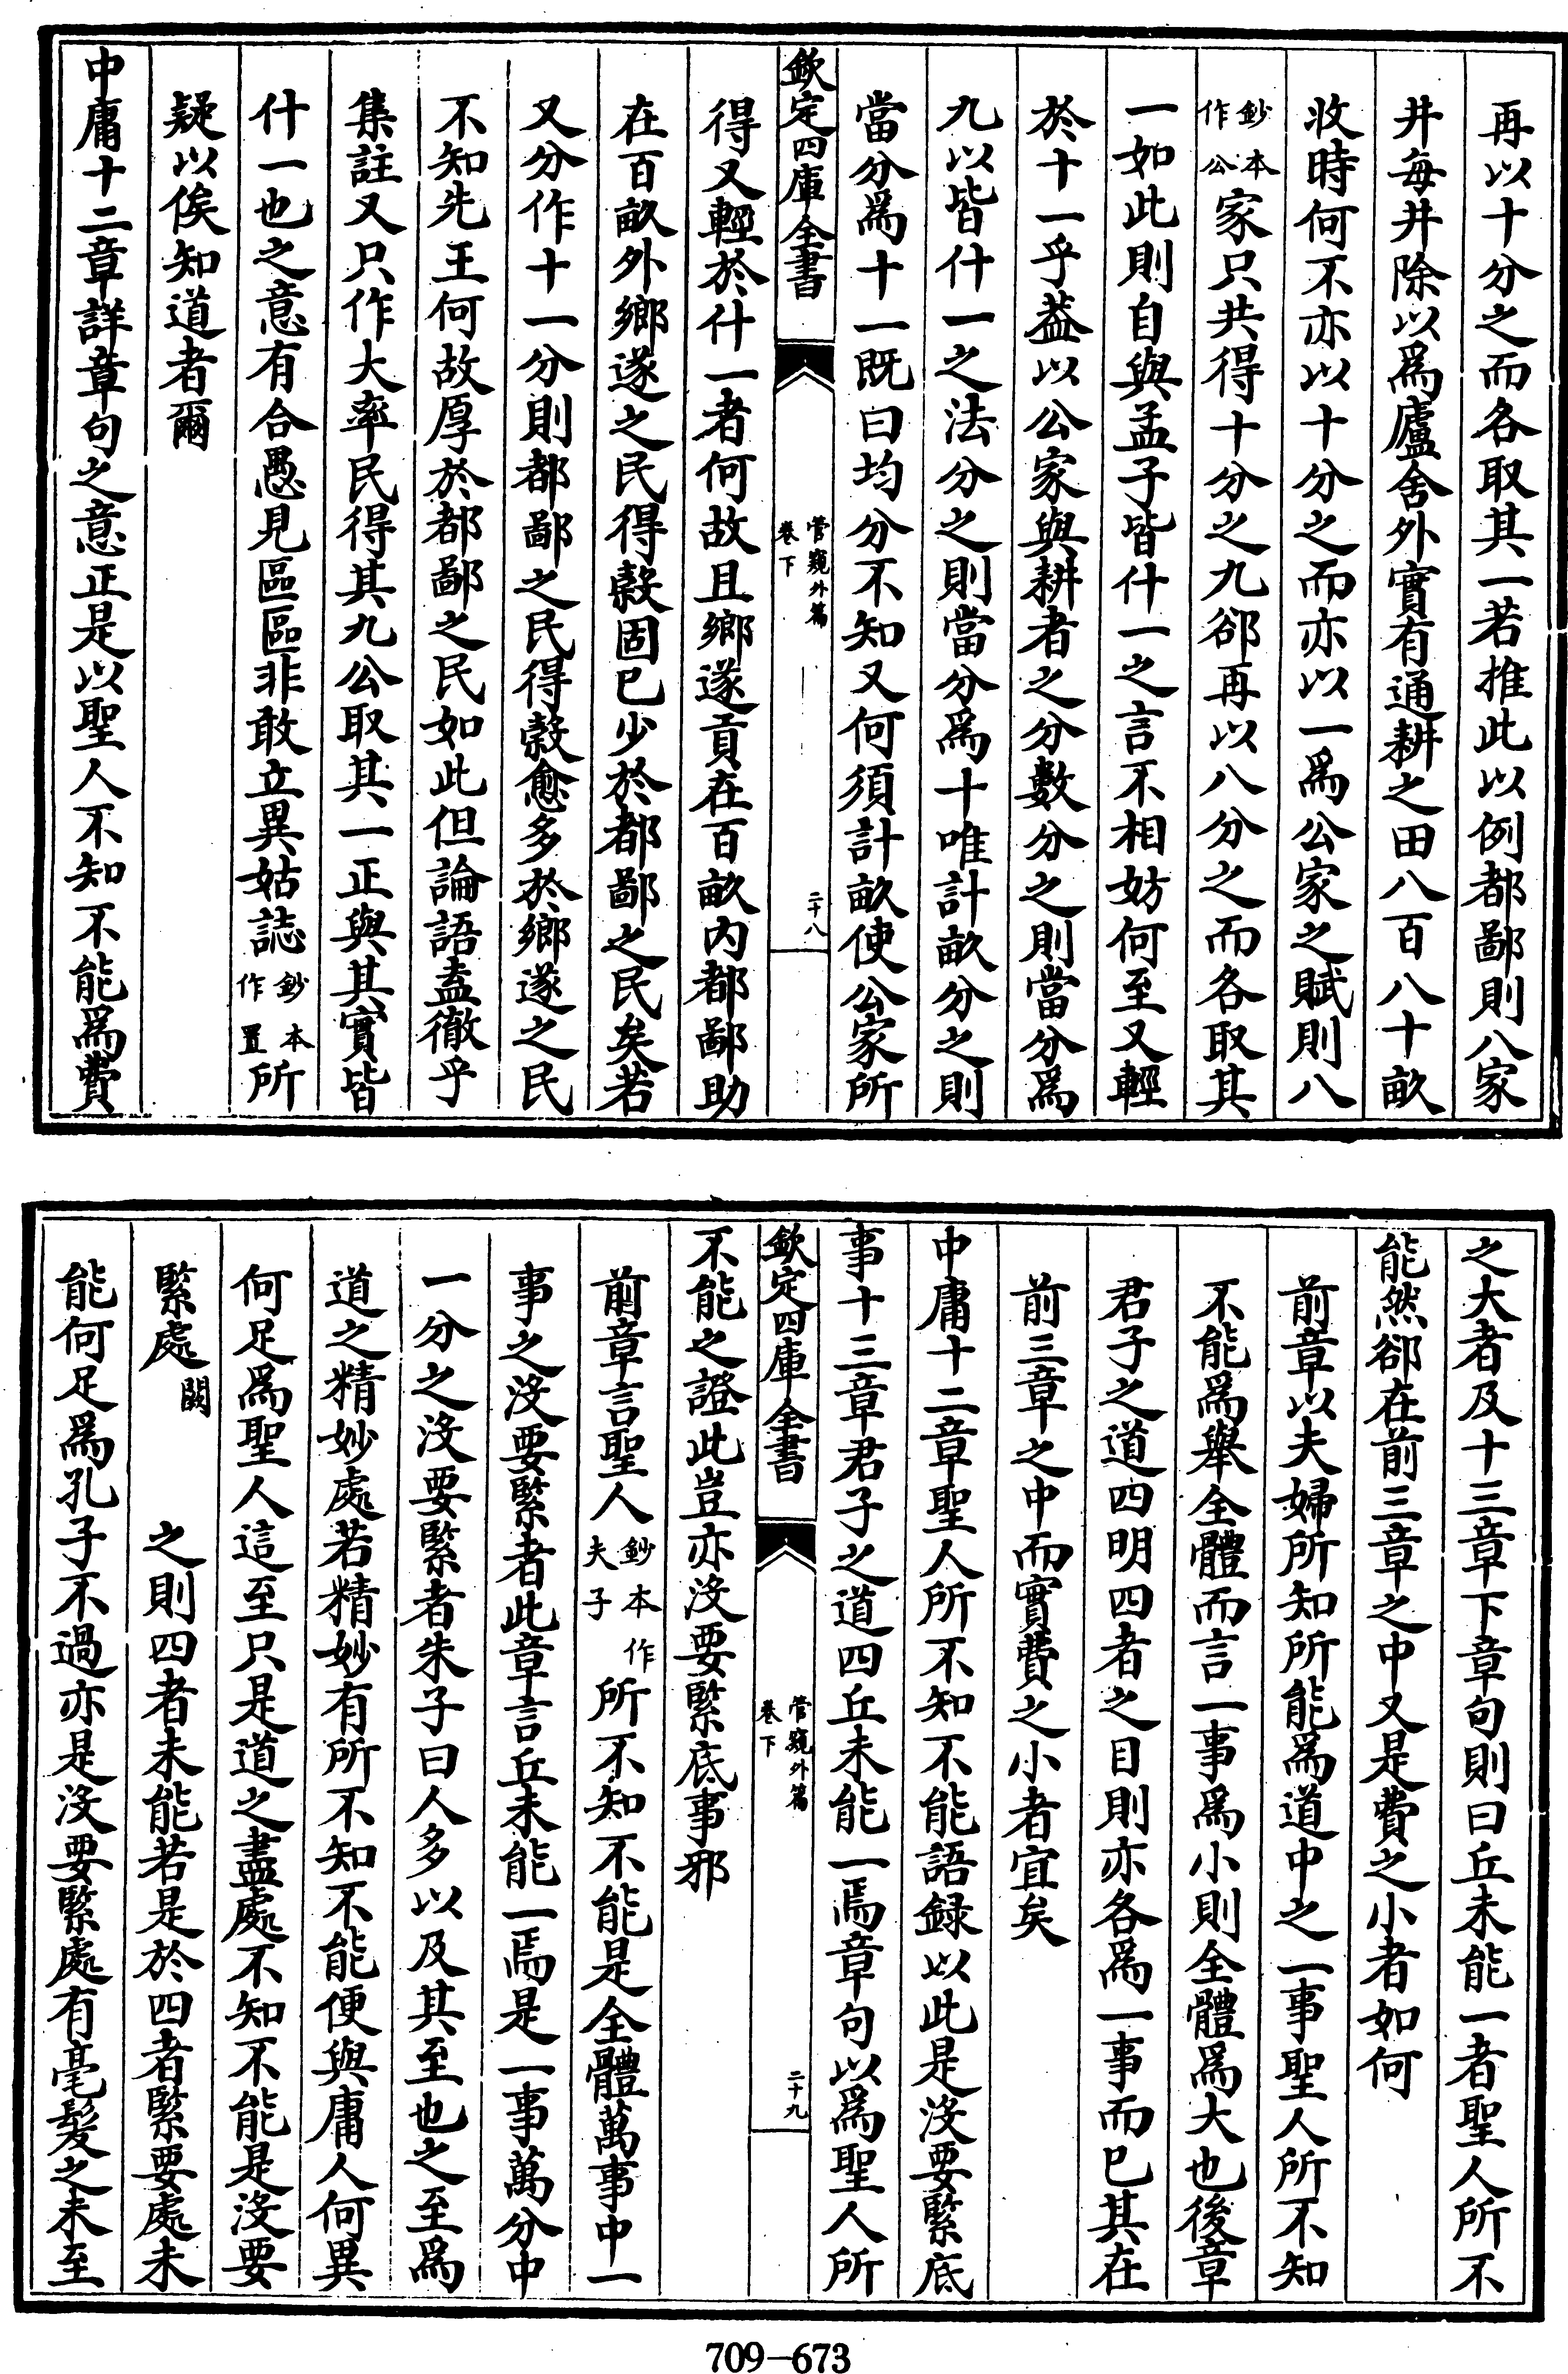 再以十分之而各取其一若推此以例都鄙則八家
井每井除以爲廬舍外實有通耕之田八百八十畝
收時何不亦以十分之而亦以一爲公家之賦則八
鈔本作公家只共得十分之九郤再以八分之而各取其
一如此則自與孟子皆什一之言不相妨何至又輕
於十一乎葢以公家與耕者之分數分之則當分爲
九以皆什一之法分之則當分爲十唯計畝分之則
當分爲十一既曰均分不知又何須計畝使公家所
欽定四庫全書
管窺外篇
卷下
二十八
得又輕於什一者何故且鄉遂貢在百畝内都鄙助
在百畝外鄉遂之民得穀固已少於都鄙之民矣若
又分作十一分則都鄙之民得穀愈多於鄉遂之民
不知先王何故厚於都鄙之民如此但論語盍徹乎
集註又只作大率民得其九公取其一正與其實皆
什一也之意有合愚見區區非敢立異姑誌鈔本作置所
疑以俟知道者爾
中庸十二章詳章句之意正是以聖人不知不能爲費
之大者及十三章下章句則曰丘未能一者聖人所不
能然郤在前三章之中又是費之小者如何
前章以夫婦所知所能爲道中之一事聖人所不知
不能爲舉全體而言一事爲小則全體爲大也後章
君子之道四明四者之目則亦各爲一事而已其在
前三章之中而實費之小者宜矣
中庸十二章聖人所不知不能語録以此是沒要緊底
事十三章君子之道四丘未能一焉章句以爲聖人所
欽定四庫全書
管窺外篇
卷下
二十九
不能之證此豈亦沒要緊底事邪
前章言聖人鈔本作夫子所不知不能是全體萬事中一
事之沒要緊者此章言丘未能一焉是一事萬分中
一分之沒要緊者朱子曰人多以及其至也之至爲
道之精妙處若精妙有所不知不能便與庸人何異
何足爲聖人這至只是道之盡處不知不能是沒要
緊處闕之則四者未能若是於四者緊要處未
能何足爲孔子不過亦是沒要緊處有毫髪之未至
709-673